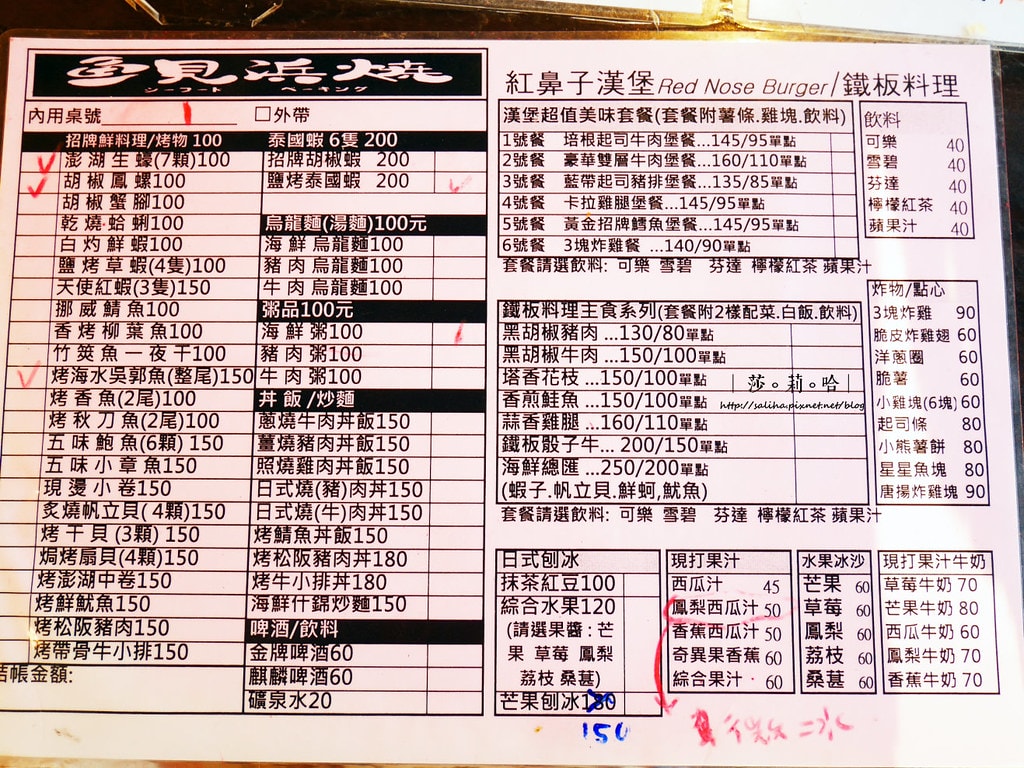 魚見浜燒
シーフード ベーキング
內用桌號 1 □外帶
招牌鮮料理/烤物 100
澎湖生蠔(7顆)100
胡椒鳳螺100
胡椒蟹腳100
乾燒蛤蜊100
白灼鮮蝦100
鹽烤草蝦(4隻)100
天使紅蝦(3隻)150
挪威鯖魚100
香烤柳葉魚100
竹筴魚一夜干100
烤海水吳郭魚(整尾)150
烤香魚(2尾)100
烤秋刀魚(2尾)100
五味鮑魚(6顆)150
五味小章魚150
現燙小卷150
炙燒帆立貝(4顆)150
烤干貝(3顆)150
焗烤扇貝(4顆)150
烤澎湖中卷150
烤鮮魷魚150
烤松阪豬肉150
烤帶骨牛小排150
結帳金額:
泰國蝦 6隻 200
招牌胡椒蝦 200
鹽烤泰國蝦 200
烏龍麵(湯麵)100元
海鮮烏龍麵100
豬肉烏龍麵100
牛肉烏龍麵100
粥品100元
海鮮粥100
豬肉粥100
牛肉粥100
丼飯/炒麵
蔥燒牛肉丼飯150
薑燒豬肉丼飯150
照燒雞肉丼飯150
日式燒(豬)肉丼150
日式燒(牛)肉丼150
烤鯖魚丼飯150
烤松阪豬肉丼180
烤牛小排丼180
海鮮什錦炒麵150
啤酒/飲料
金牌啤酒60
麒麟啤酒60
礦泉水20
紅鼻子漢堡Red Nose Burger/鐵板料理
漢堡超值美味套餐(套餐附薯條.雞塊.飲料)
1號餐 培根起司牛肉堡餐...145/95單點
2號餐 豪華雙層牛肉堡餐...160/110單點
3號餐 藍帶起司豬排堡餐...135/85單點
4號餐 卡拉雞腿堡餐...145/95單點
5號餐 黃金招牌鱈魚堡餐...145/95單點
6號餐 3塊炸雞餐 ...140/90單點
套餐請選飲料: 可樂 雪碧 芬達 檸檬紅茶 蘋果汁
飲料
可樂 40
雪碧 40
芬達 40
檸檬紅茶 40
蘋果汁 40
鐵板料理主食系列(套餐附2樣配菜.白飯.飲料)
黑胡椒豬肉 ...130/80單點
黑胡椒牛肉 ...150/100單點
塔香花枝 ...150/100單點
香煎鮭魚 ...150/100單點
蒜香雞腿 ...160/110單點
鐵板骰子牛 ... 200/150單點
海鮮總匯 ...250/200單點
(蝦子.帆立貝.鮮蚵,魷魚)
套餐請選飲料: 可樂 雪碧 芬達 檸檬紅茶 蘋果汁
|莎。莉。哈|
http://saliha.pixnet.net/blog
炸物/點心
3塊炸雞 90
脆皮炸雞翅 60
洋蔥圈 60
脆薯 60
小雞塊(6塊) 60
起司條 80
小熊薯餅 80
星星魚塊 80
唐揚炸雞塊 90
日式刨冰
抹茶紅豆100
綜合水果120
(請選果醬:芒
果 草莓 鳳梨
荔枝 桑葚)
芒果刨冰180
150
現打果汁
西瓜汁 45
鳳梨西瓜汁 50
香蕉西瓜汁 50
奇異果香蕉 60
綜合果汁 60
水果冰沙
芒果 60
草莓 60
鳳梨 60
荔枝 60
桑葚 60
現打果汁牛奶
草莓牛奶 70
芒果牛奶 80
西瓜牛奶 60
鳳梨牛奶 70
香蕉牛奶 70